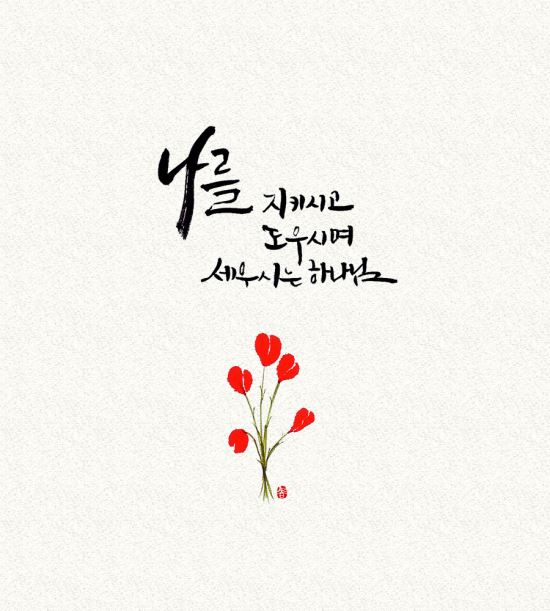 나를 지키시고
도우시며
세우시는 하나님